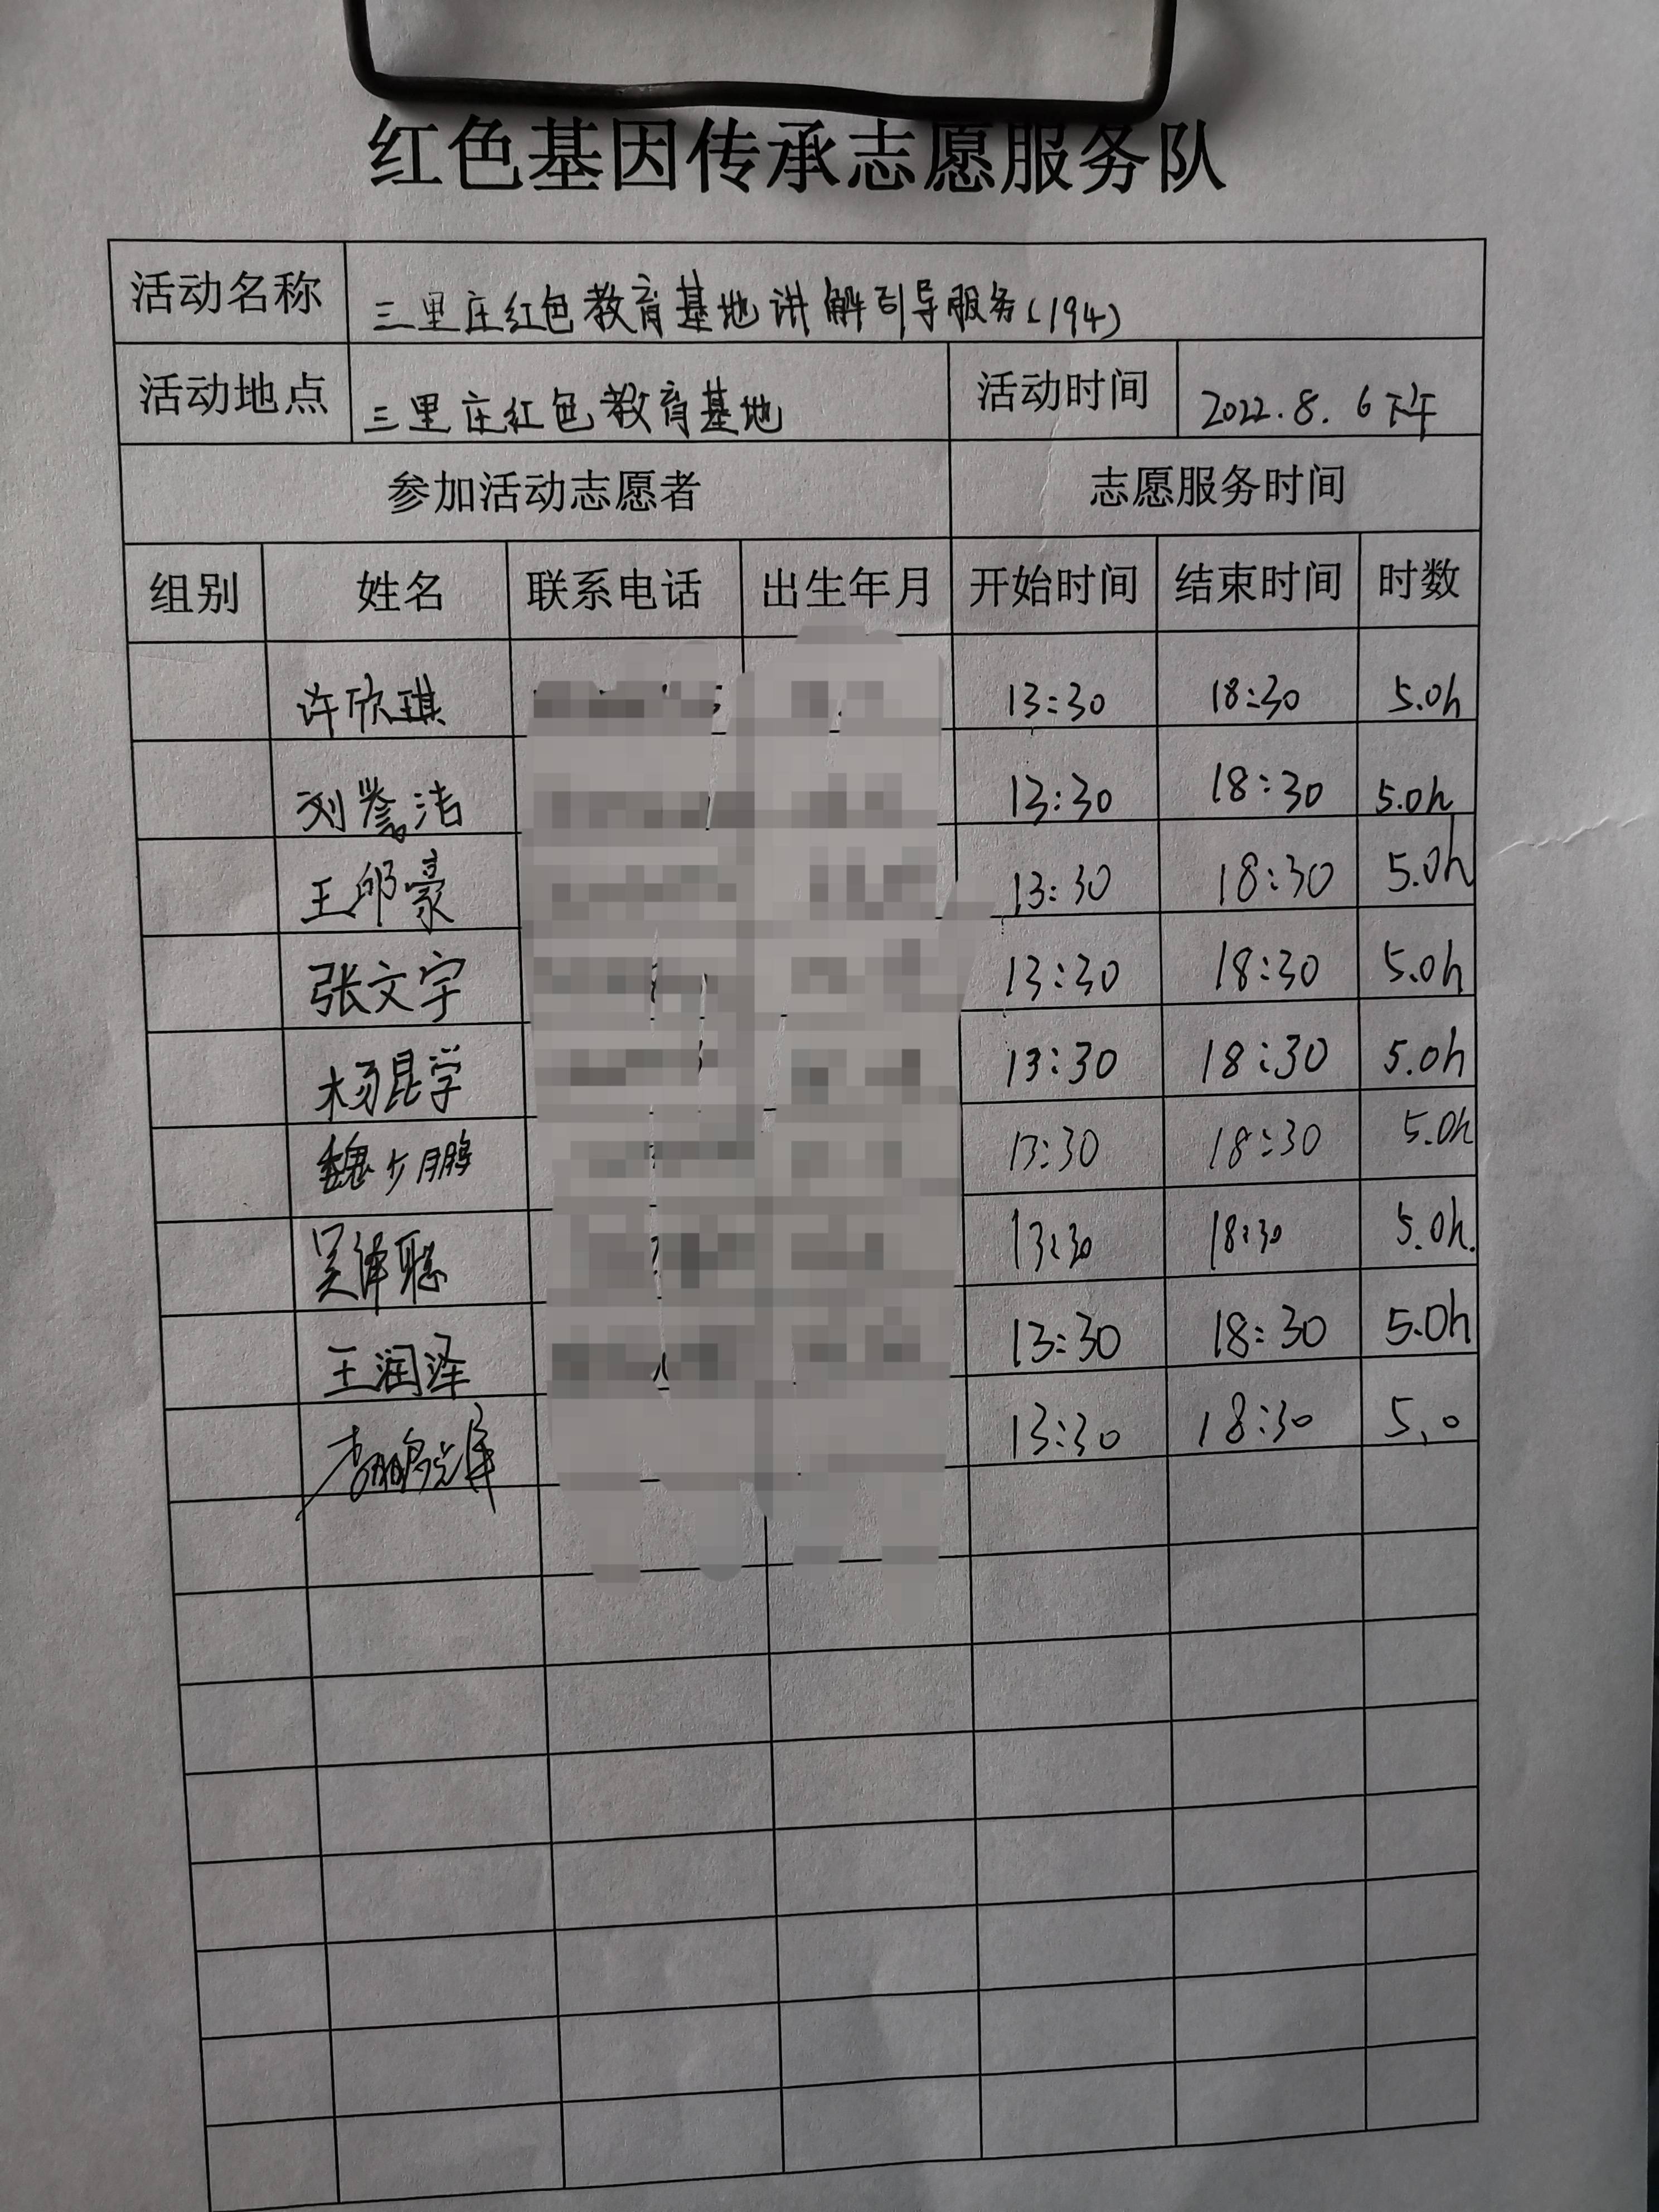 红色基因传承志愿服务队
活动名称 三里庄红色教育基地讲解引导服务(194)
活动地点 三里庄红色教育基地 活动时间 2022.8.6下午
参加活动志愿者 志愿服务时间
组别 姓名 联系电话 出生年月 开始时间 结束时间 时数
许欣琪 13:30 18:30 5.0h
刘誉洁 13:30 18:30 5.0h
王邱豪 13:30 18:30 5.0h
张文宇 13:30 18:30 5.0h
杨昆学 13:30 18:30 5.0h
魏少鹏 13:30 18:30 5.0h
吴泽聪 13:30 18:30 5.0h.
王润泽 13:30 18:30 5.0h
13:30 18:30 5.0